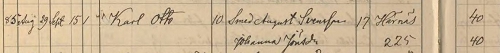 85 Aug 29 Sept. 15 1 " Karl Otto 10 Smed August Svensson 17 Härnäs 40
Johanna Jönsdr 225 40